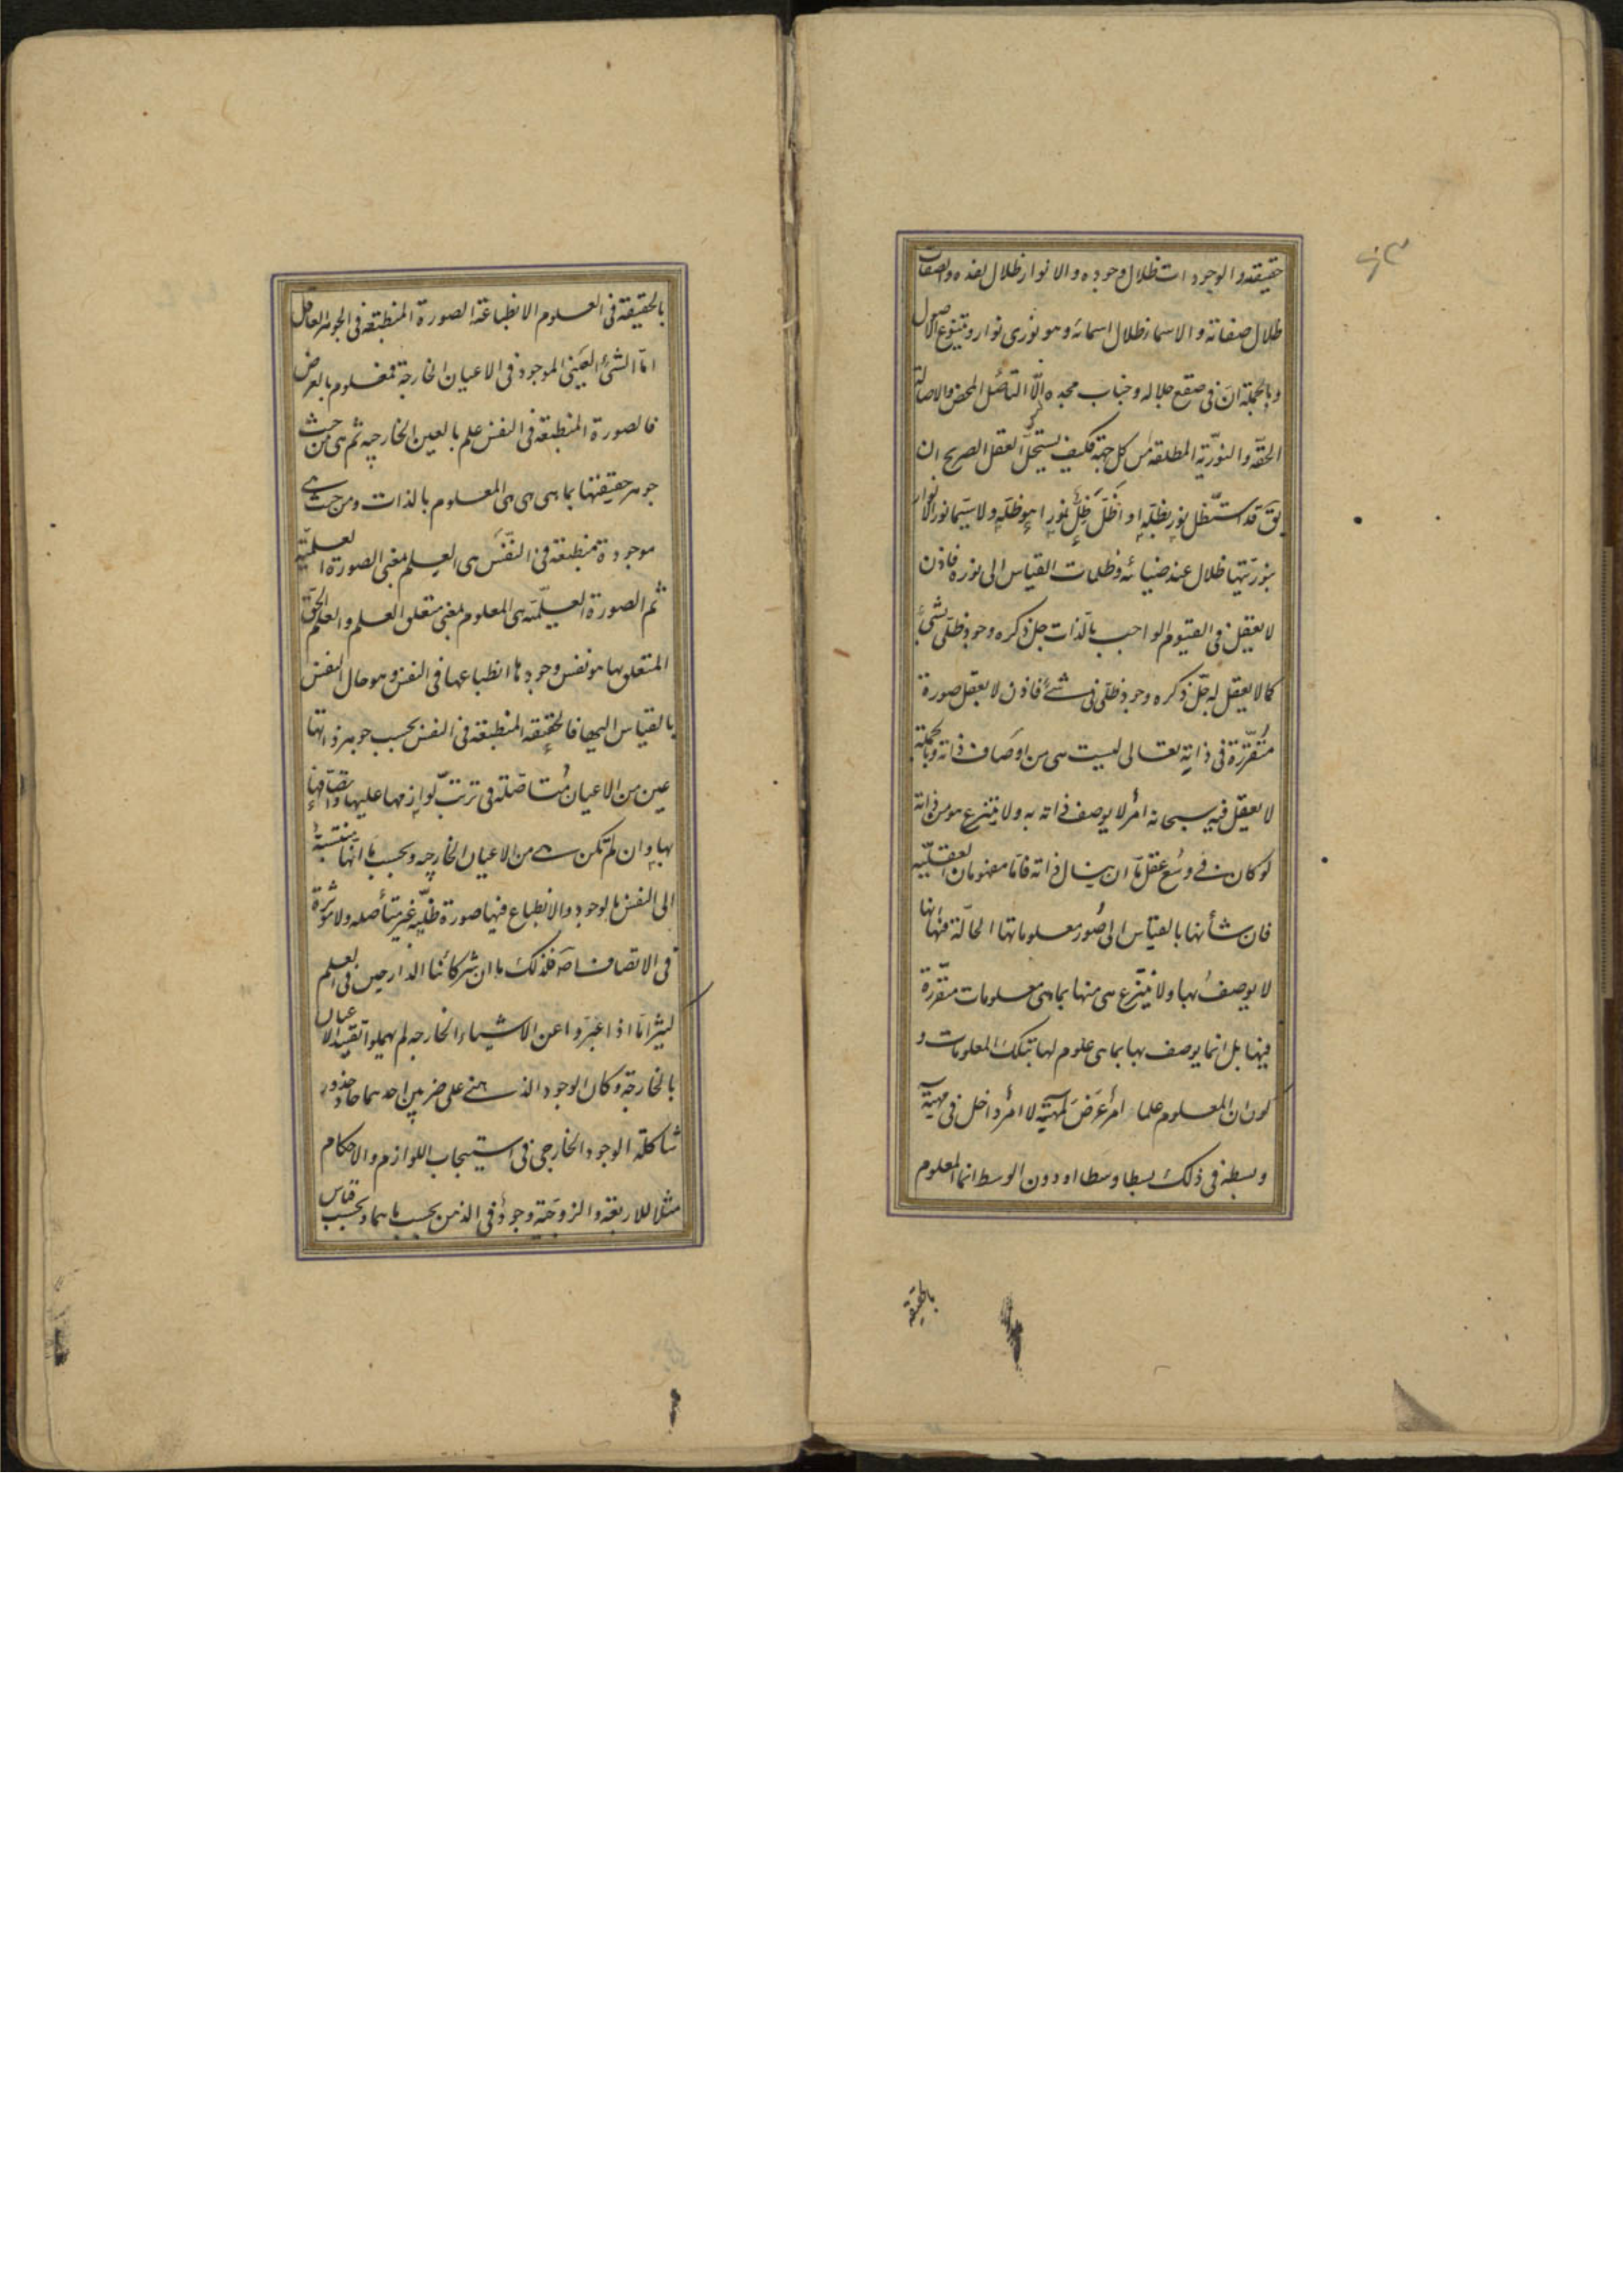 حقيقته والوجودات ظلال وجوده والانوار ظلال نوره والصفات
ظلال صفاته والاسماء ظلال اسمائه وهو نوري نوار وينبوع الاصول
وبالجملة ان في صقع جلاله وجناب مجده الّا التأصّل المحض والاصالة
الحقّة والنوريّة المطلقة من كل جهة فكيف يستحلّ العقل الصريح ان
يقَ قد استظل نور بظله او اظلّ ظلّ لنور هو ظله ولا سيّما نور الانوار
بنوريتها ظلال عند ضيائه وظلمات بالقياس الى نوره فاذن
لا يعقل في القيوم الواجب بالذات جل ذكره وجود ظلّي لشئ
كما لا يعقل له جلّ ذكره وجود ظلّي في شئ فاذن لا يعقل صورة
متقرّرة في ذاته تعالى ليست هى من اوصاف ذاته وبالجملة
لا يعقل فيه سبحانه امر لا يوصف ذاته به ولا ينتزع هو من ذاته
لو كان في وسع عقل مّا ان ينال ذاته فامّا العقلية
فان شأنها بالقياس الى صور معلوماتها الحالّة فيها انها
لا يوصف بها ولا ينتزع هى منها بما هى معلومات متقرّرة
فيها بل انما يوصف بها بما هى علوم لها بتلك المعلومات و
كون المعلوم علما امر عرض لمهيّته لا امر داخل في مهيّته
وبسطه في ذلك بسطا وسطا او دون الوسط انما المعلوم
بالحقيقة
بالحقيقة في العلوم الانطباعية الصورة المنطبعة في الجوهر العاقل
امّا الشئ العيني الموجود في الاعيان الخارجة فمعلوم بالعرض
فالصورة المنطبعة في النفس علم بالعين الخارجيه ثم هى من حيث
جوهر حقيقتها بما هى هى هى المعلوم بالذات ومن حيث هى
موجودة منطبعة في النفس هى العلم بمعنى الصورة العلميّة
ثم الصورة العلميّة هى المعلوم بمعنى متعلق العلم والعلم الحق
المتعلق بها هو نفس وجودها انطباعها في النفس وهو حال النفس
بالقياس اليها فالحقيقة المنطبعة في النفس بحسب جوهر ذاتها
عين من الاعيان متاصّلة في ترتب لوازمها عليها واتصافها
بها وان لم تكن هى من الاعيان الخارجه وبحسب ما انها منتسبة
الى النفس بالوجود والانطباع فيها صورة ظليّه غير متأصله ولا مؤثرة
في الاتصاف اصلا فذلك ما ان شركائنا الدارجين في العلم
اذا عبّروا عن الاشياء الخارجه لم يهملوا تقييد الاعيان
بالخارجة وكان الوجود الذهني على ضربين احدهما حاذ حذو
شاكلة الوجود الخارجي في استيجاب اللوازم والاحكام
مثلا للاربعة والزوجية وجود في الذهن بحسب ما هما وبحسب قياس